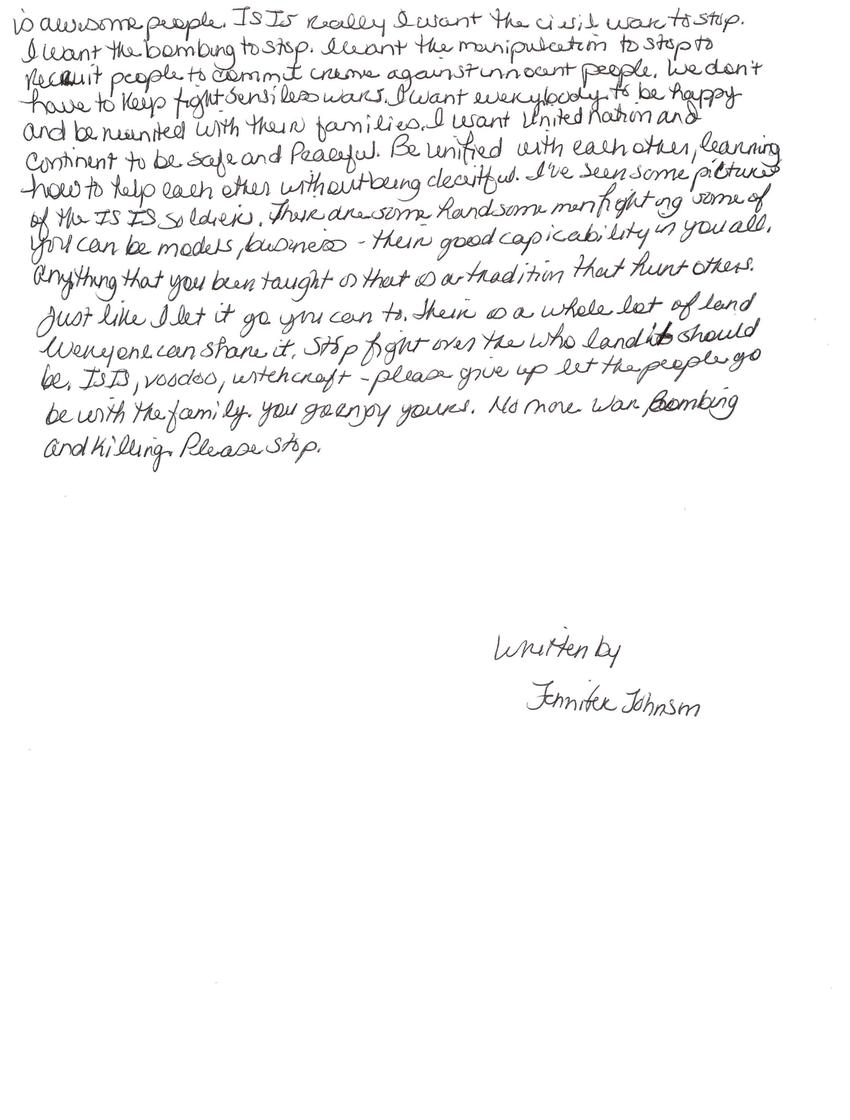 is awesome people. ISIS really I want the civil war to stop.
I want the bombing to stop. I want the manipulation to stop to
recruit people to commit crime against innocent people. We don't
have to keep fight sensiless wars. I want everybody to be happy
and be reunited with their families. I want United Nation and
Continent to be safe and Peaceful. Be unified with each other, learning
how to help each other without being deceitful. I've seen some pictures
of the ISIS soldiers. There are some handsome men fighting some of
you can be models, business - their good capicability in you all.
Anything that you been taught is that is a tradition that hurt others.
Just like I let it go you can to. Their is a whole lot of land
everyone can share it. Stop fight over the who land it should
be. ISIS, voodoo, witchcraft - please give up let the people go
be with the family. You go enjoy yours. No more War Bombing
and killing. Please Stop.
Written by
Jennifer Johnson